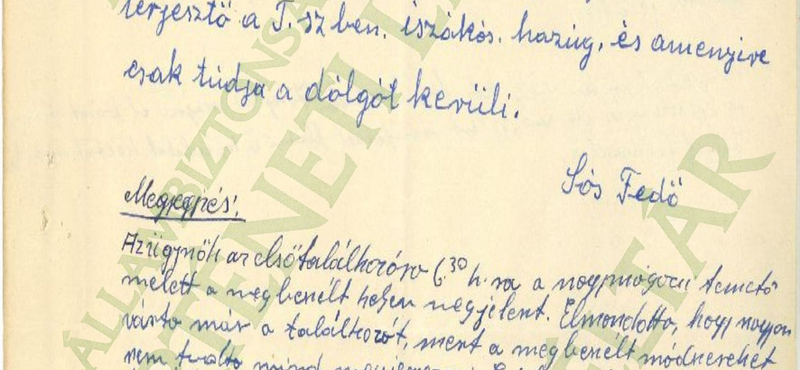 terjesztő a T.szben. iszákos. hazúg. és amenyire
csak túdja a dólgót kerüli.
Sós Fedő
Megjegyzés:
Az ügynök az első találkozóra 6.30 h.ra a nagymágocsi temető
melett a megbeszélt helyen megjelent. Elmondotta, hogy nagyon
várta már a találkozót, mert a megbeszélt módszereket
nem tudta mind
ÁLLAMBIZTONSÁ
TÖRTÉNETI LE
TÁR